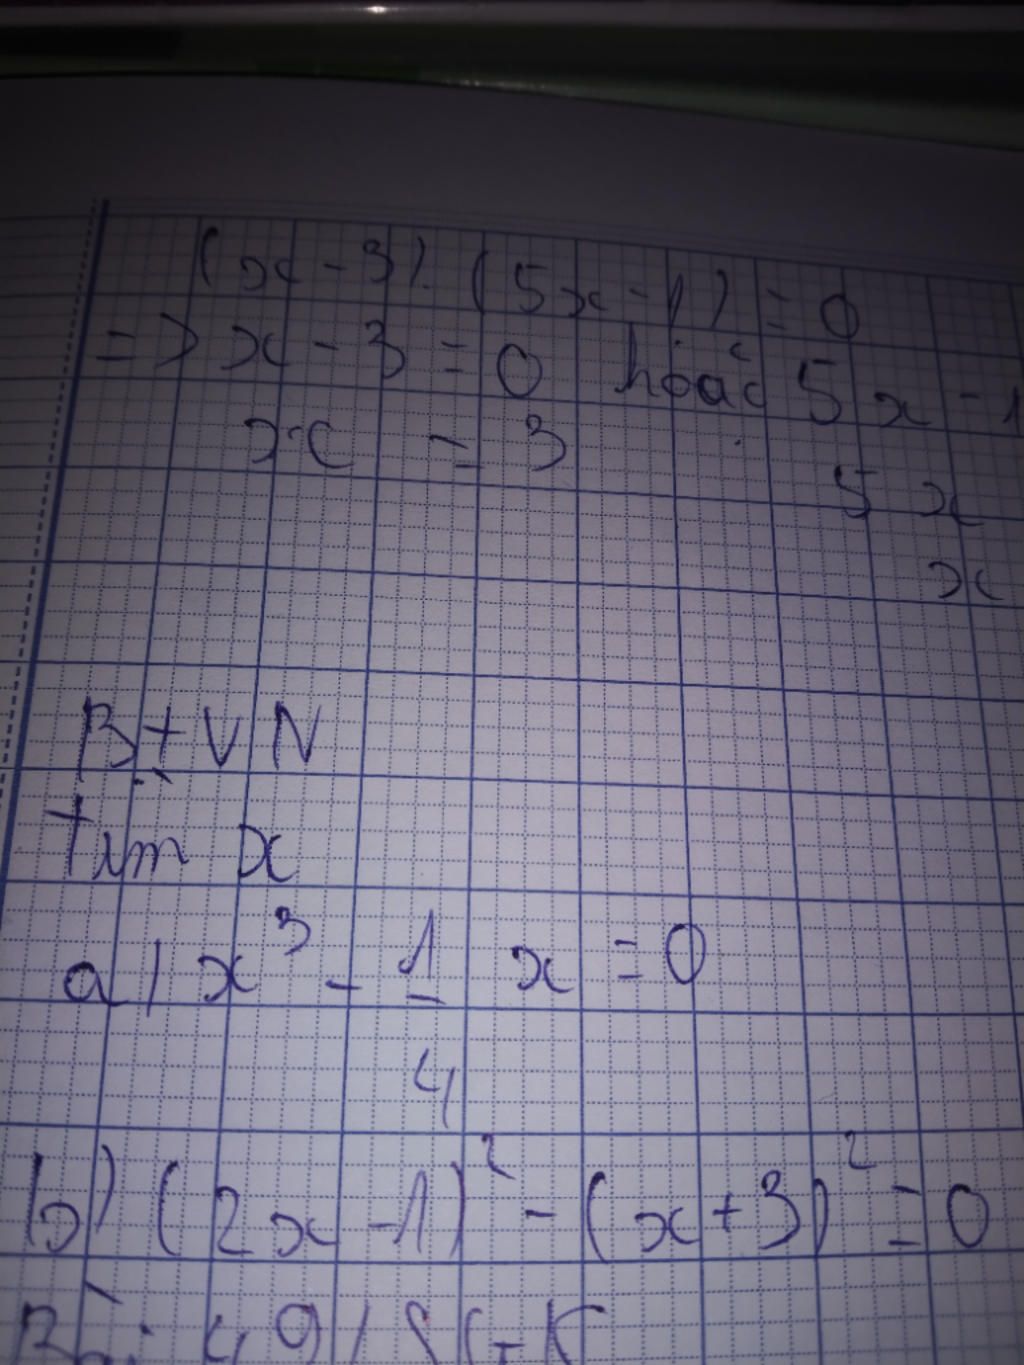 (x - 3). (5x - 1) = 0
=> x - 3 = 0 hoặc 5x - 1
x = 3 5x
x
BTVN
tìm x
a) x³ - 1/4 x = 0
b) (2x - 1)² - (x + 3)² = 0
Bài 49 / SGK